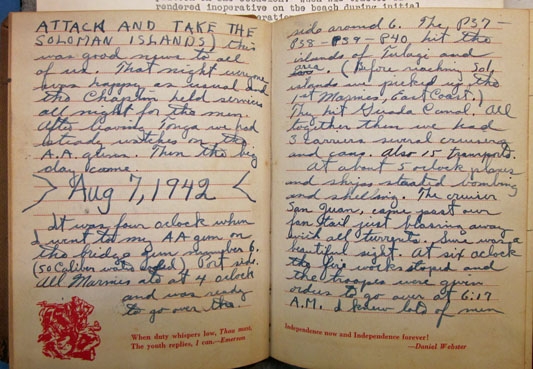 rendered inoperative on the beach during initial
ATTACK AND TAKE THE
SOLOMAN ISLANDS) this
was good news to all
of us. That night everyone
was happy as usual and
the Chaplin held services
all night for the men.
After leaving Tonga we had
steady watches on the
A.A. guns. Then the big
day came.
Aug 7, 1942
It was four oclock when
I went to my AA gun on
the bridge gun number 6.
(50 Caliber water cooled) Port side.
All Marines ate at 4 oclock
and was ready
to go over the
When duty whispers low, Thou must,
The youth replies, I can.—Emerson
side around 6. The P37-
P38-P39-P40 hit the
islands of Tulagi and
area. (Before reaching Sol.
islands we picked up the
1st Marines, East Coast.)
They hit Guada Canal. All
together then we had
3 carriers several cruisers
and cans. Also 15 transports.
At about 5 oclock planes
and ships started bombing
and shelling. The cruiser
San Juan, came past our
fan tail just blasing away
with all turrets. Sure was a
beautiful sight. At six oclock
the fire works stoped and
the troopes were given
orders to go over at 6:17
A.M. I knew lots of men
Independence now and Independence forever!
—Daniel Webster